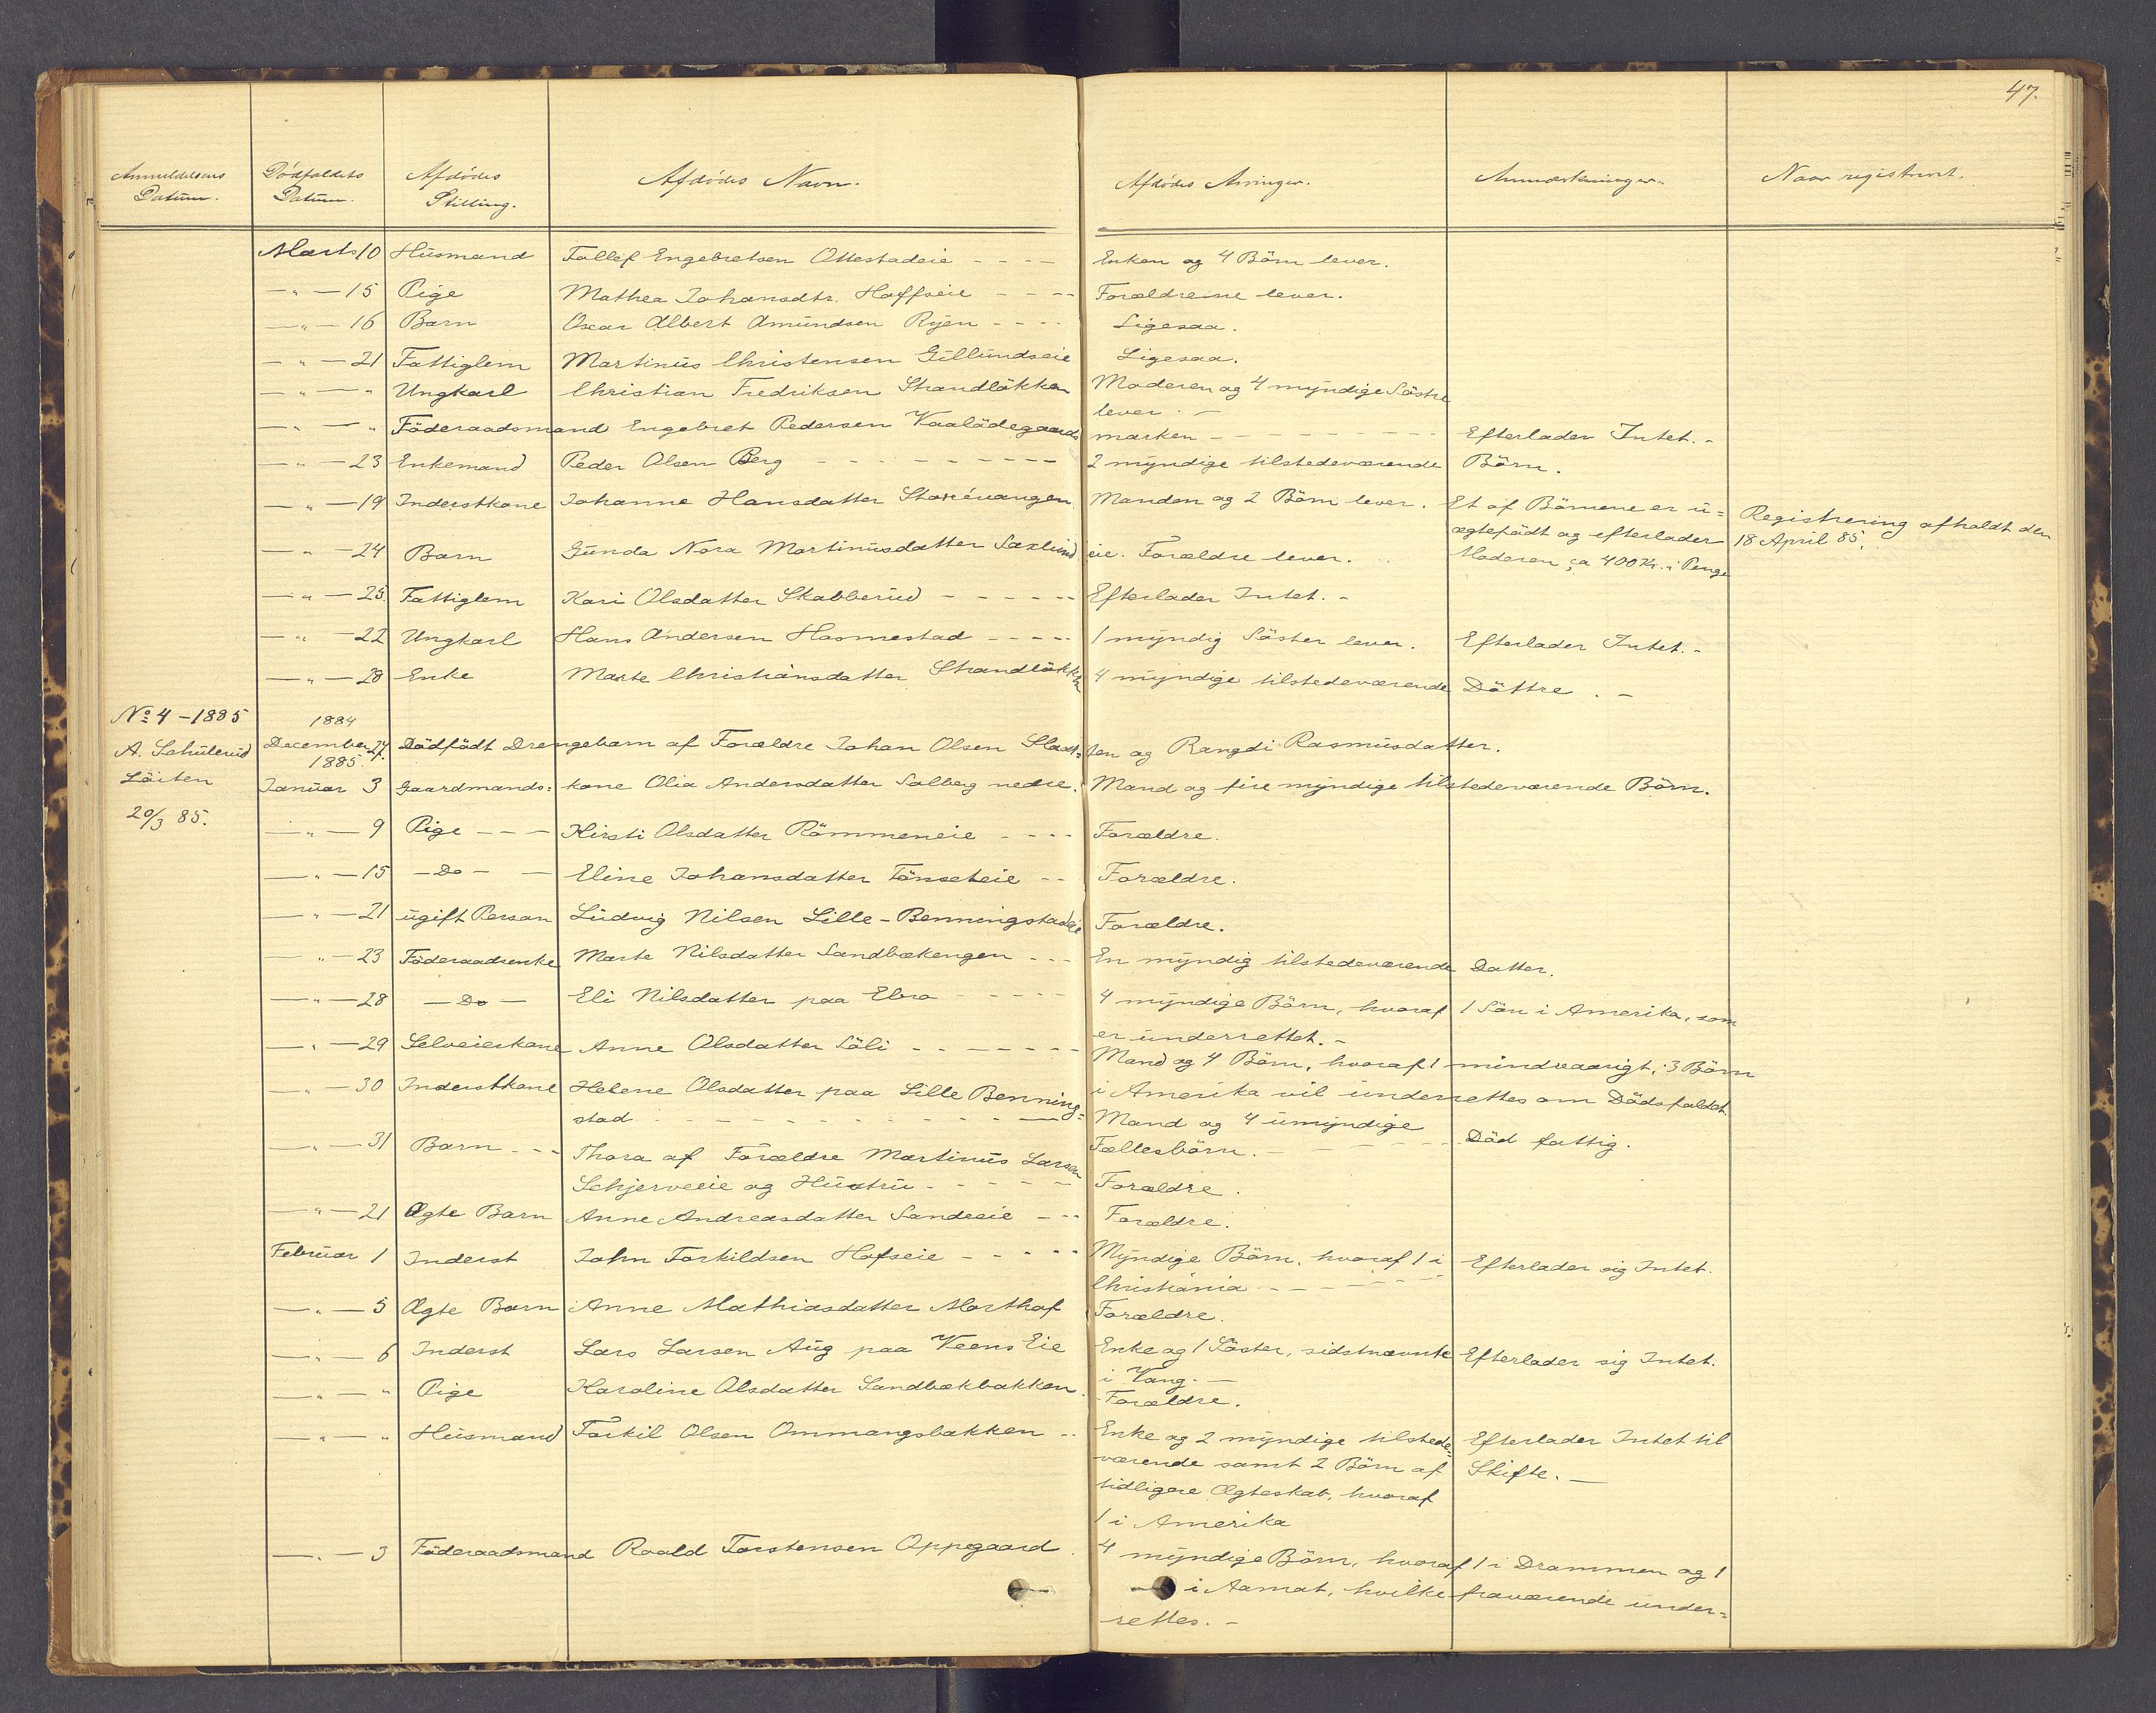 47.
Anmeldelsens Datum. Dödsfaldets Datum. Afdödes Stilling. Afdödes Navn. Afdödes Arvinger. Anmærkninger. Naar registreret.
Marts 10 Husmand Tollef Engebretsen Ottestadeie - - - - Enken og 4 Börn lever.
— " — 15 Pige Mathea Johansdtr. Hoffseie - - - - Forældrerne lever.
— " — 16 Barn Oscar Albert Amundsen Ryen - - - - Ligesaa.
— " — 21 Fattiglem Martinus Christensen Gillundseie Ligesaa.
— " — " Ungkarl Christian Fredriksen Strandlökken Moderen og 4 myndige Söstre
lever. —
— " — " Föderaadsmand Engebret Pedersen Vaalödegaards marken - - - - - - - Efterlader Intet. -
— " — 23 Enkemand Peder Olsen Berg - - - - - - - 2 myndige tilstedeværende Börn.
— " — 19 Inderstkone Johanne Hansdatter Storévangen Manden og 2 Börn lever. Et af Börnene er u= Registrering afholdt den
ægtefödt og efterlader 18 April 85.
— " — 24 Barn Gunda Nora Martinusdatter Saxlund eie. Forældre lever. Moderen ca 400 Kr. i Penge
— " — 25. Fattiglem Kari Olsdatter Skabberud - - - - - Efterlader Intet. -
— " — 22 Ungkarl Hans Andersen Hosmestad - - - - 1 myndig Söster lever. Efterlader Intet. -
— " — 28 Enke Marte Christiansdatter Strandlökken 4 myndige tilstedeværende Döttre. —
No 4 - 1885 1884
A. Schulerud December 27. Dödfödt Drengebarn af Forældre Johan Olsen Sladt= ten og Rangdi Rasmusdatter.
1885
Löiten Januar 3 Gaardmands= kone Olia Andersdatter Solberg nedre. Mand og fire myndige tilstedeværende Börn.
20/3 85.
— " — 9 Pige - - - Kirsti Olsdatter Römmeneie - - - - Forældre.
— " — 15 - Do - - Eline Johansdatter Tönseteie - - Forældre.
— " — 21 ugift Person Ludvig Nilsen Lille-Benningstadeie Forældre.
— " — 23 Föderaadsenke Marte Nilsdatter Sandbækengen - - - En myndig tilstedeværende Datter.
— " — 28 — Do — Eli Nilsdatter paa Ebro - - - - 4 myndige Börn, hvoraf 1 Sön i Amerika, som
er underrettet. -
— " — 29 Selveierkone Anne Olsdatter Söli - - - - - - Mand og 4 Börn, hvoraf 1 mindreaarigt; 3 Börn
i Amerika vil underrettes om Dödsfaldet.
— " — 30 Inderstkone Helene Olsdatter paa Lille Benning=
stad - - - - - - - - Mand og 4 umyndige
Fællesbörn. - - - - - Död fattig.
— " — 31 Barn - - - Thora af Forældre Martinus Larsen
Schjerveeie og Hustru - - - - - Forældre.
— " — 21 Ægte Barn Anne Andreasdatter Sandeeie - - - Forældre.
Februar 1 Inderst John Torkildsen Hofseie - - - - - Myndige Börn, hvoraf 1 i Efterlader sig Intet.
Christiania - - - - - -
— " — 5 Ægte Barn Anne Mathiasdatter Morthof Forældre.
— " — 6 Inderst Lars Larsen Aug paa Veens Eie Enke og 1 Söster, sidstnævnte Efterlader sig Intet.
i Vang. —
— " — " Pige Karoline Olsdatter Sandbækbakken. Forældre.
— " — " Husmand Torkil Olsen Ommangsbakken - - Enke og 2 myndige tilstede= Efterlader Intet til
værende samt 2 Börn af Skifte. —
tidligere Ægteskab, hvoraf
1 i Amerika
— " — 3 Föderaadsmand Roald Torstensen Oppegaard. 4 myndige Börn, hvoraf 1 i Drammen og 1
i Aamot, hvilke fraværende under=
rettes. -